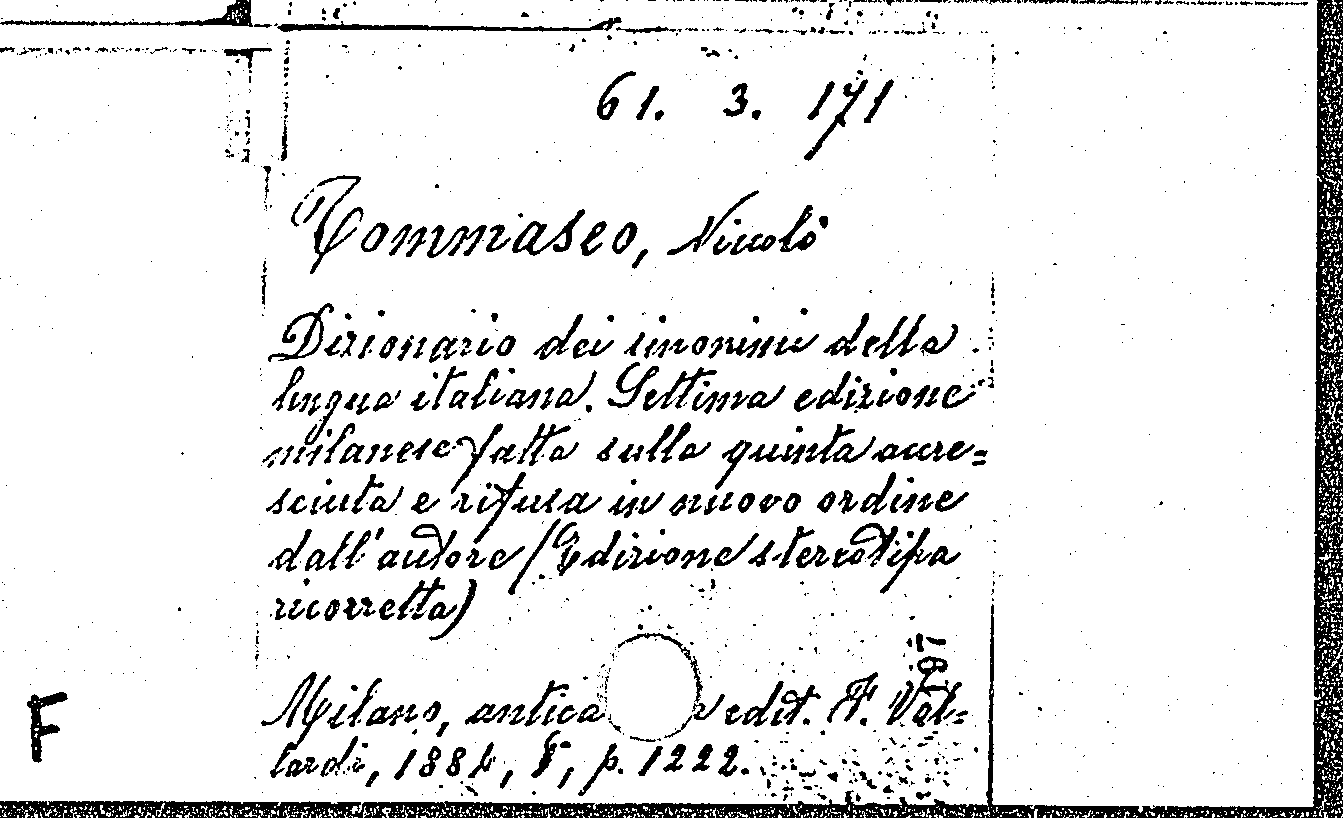 61. 3. 171
Tommaseo, Niccolò
Dizionario dei sinonimi della
lingua italiana. Settima edizione
milanese fatta sulla quinta accre=
sciuta e rifusa in nuovo ordine
dall'autore (Edizione stereotipa
ricorretta)
197
Milano, antica edit. F. Val=
lardi, 1884, 8°, p. 1222.
F